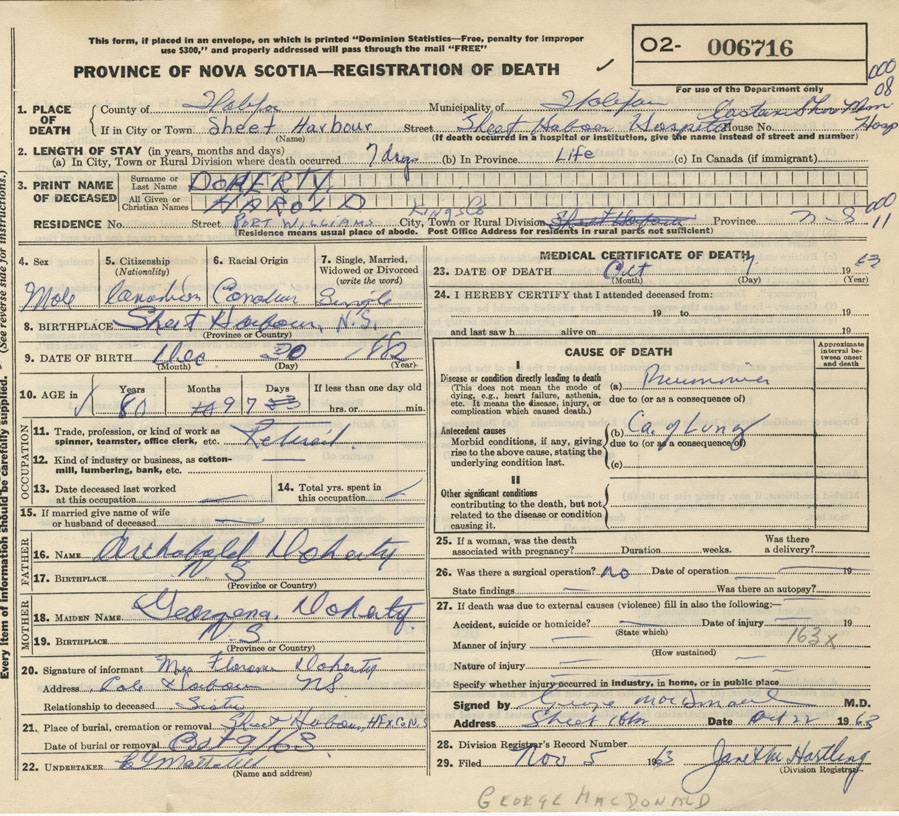 This form, if placed in an envelope, on which is printed "Dominion Statistics—Free, penalty for improper
use $300," and properly addressed will pass through the mail "FREE"
O2- 006716
PROVINCE OF NOVA SCOTIA—REGISTRATION OF DEATH ✓
For use of the Department only
000
08
1. PLACE OF DEATH
County of Halifax Municipality of Halifax
Eastern Shore Mem Hosp
If in City or Town Sheet Harbour Street Sheet Harbour Hospital House No.
(Name) (If death occurred in a hospital or institution, give the name instead of street and number)
2. LENGTH OF STAY (in years, months and days)
(a) In City, Town or Rural Division where death occurred 7 days (b) In Province Life (c) In Canada (if immigrant)
3. PRINT NAME OF DECEASED
Surname or Last Name DOHERTY
All Given or Christian Names HAROLD
Kings Co
000
11
RESIDENCE No. Street PORT WILLIAMS City, Town or Rural Division Sheet Harbour Province N-S
(Residence means usual place of abode. Post Office Address for residents in rural parts not sufficient)
4. Sex Male
5. Citizenship (Nationality) Canadian
6. Racial Origin Canadian
7. Single, Married, Widowed or Divorced (write the word) Single
8. BIRTHPLACE Sheet Harbour, N.S.
(Province or Country)
9. DATE OF BIRTH Dec 30 1882
(Month) (Day) (Year)
10. AGE in Years Months Days If less than one day old
80 9 7 hrs. or min.
OCCUPATION
11. Trade, profession, or kind of work as
spinner, teamster, office clerk, etc. Retired
12. Kind of industry or business, as cotton-
mill, lumbering, bank, etc.
13. Date deceased last worked
at this occupation
14. Total yrs. spent in
this occupation
15. If married give name of wife
or husband of deceased
FATHER
16. NAME Archabald Doherty
17. BIRTHPLACE N S
(Province or Country)
MOTHER
18. MAIDEN NAME Georgena Doherty
19. BIRTHPLACE N.S.
(Province or Country)
20. Signature of informant Mrs Florence Doherty
Address Cole Harbour NS
Relationship to deceased Sister
21. Place of burial, cremation or removal Sheet Harbour, HFX.Co N.S
Date of burial or removal Oct 9/63
22. UNDERTAKER
(Name and address)
MEDICAL CERTIFICATE OF DEATH
23. DATE OF DEATH Oct 7 19 63
(Month) (Day) (Year)
24. I HEREBY CERTIFY that I attended deceased from:
19 to 19
and last saw h alive on 19
CAUSE OF DEATH
Approximate interval between onset and death
I
Disease or condition directly leading to death
(This does not mean the mode of
dying, e.g., heart failure, asthenia,
etc. It means the disease, injury, or
complication which caused death.)
(a) Pneumonia
due to (or as a consequence of)
Antecedent causes
Morbid conditions, if any, giving
rise to the above cause, stating the
underlying condition last.
(b) Ca. of Lung
due to (or as a consequence of)
(c)
II
Other significant conditions
contributing to the death, but not
related to the disease or condition
causing it.
25. If a woman, was the death
associated with pregnancy? Duration weeks. Was there
a delivery?
26. Was there a surgical operation? No Date of operation 19
State findings Was there an autopsy?
27. If death was due to external causes (violence) fill in also the following:
Accident, suicide or homicide? Date of injury 19
(State which)
163x
Manner of injury
(How sustained)
Nature of injury
Specify whether injury occurred in industry, in home, or in public place
Signed by George MacDonald M.D.
Address Sheet Hbr Date Oct 22 1963
28. Division Registrar's Record Number
29. Filed Nov 5 1963 Janet M Hartling
(Division Registrar)
GEORGE MACDONALD
(See reverse side for instructions.)
Every item of information should be carefully supplied.